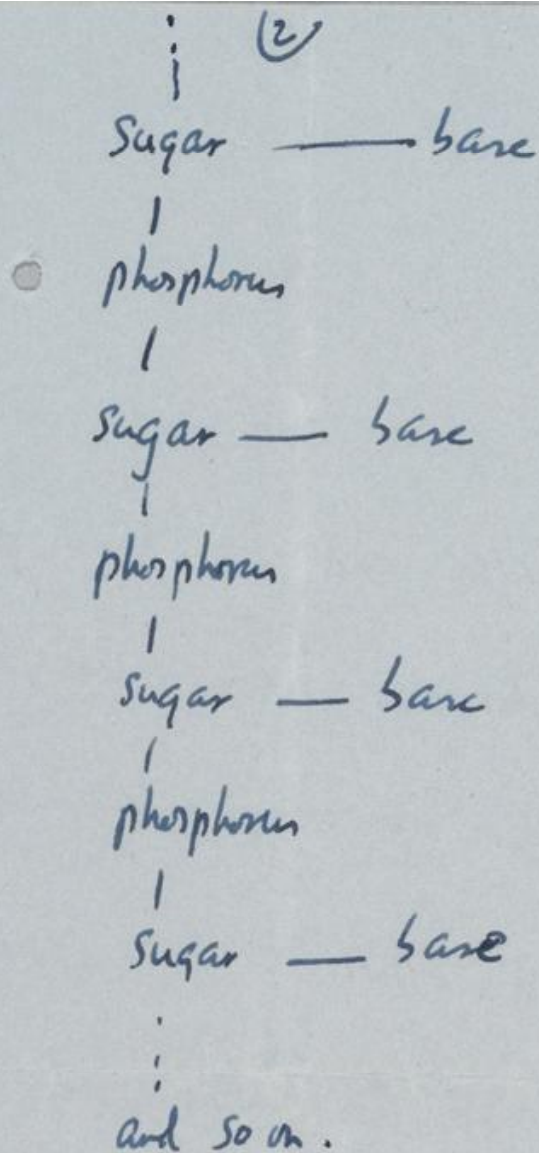 2
Sugar — base
phosphorus
sugar — base
phosphorus
sugar — base
phosphorus
sugar — base
and so on.